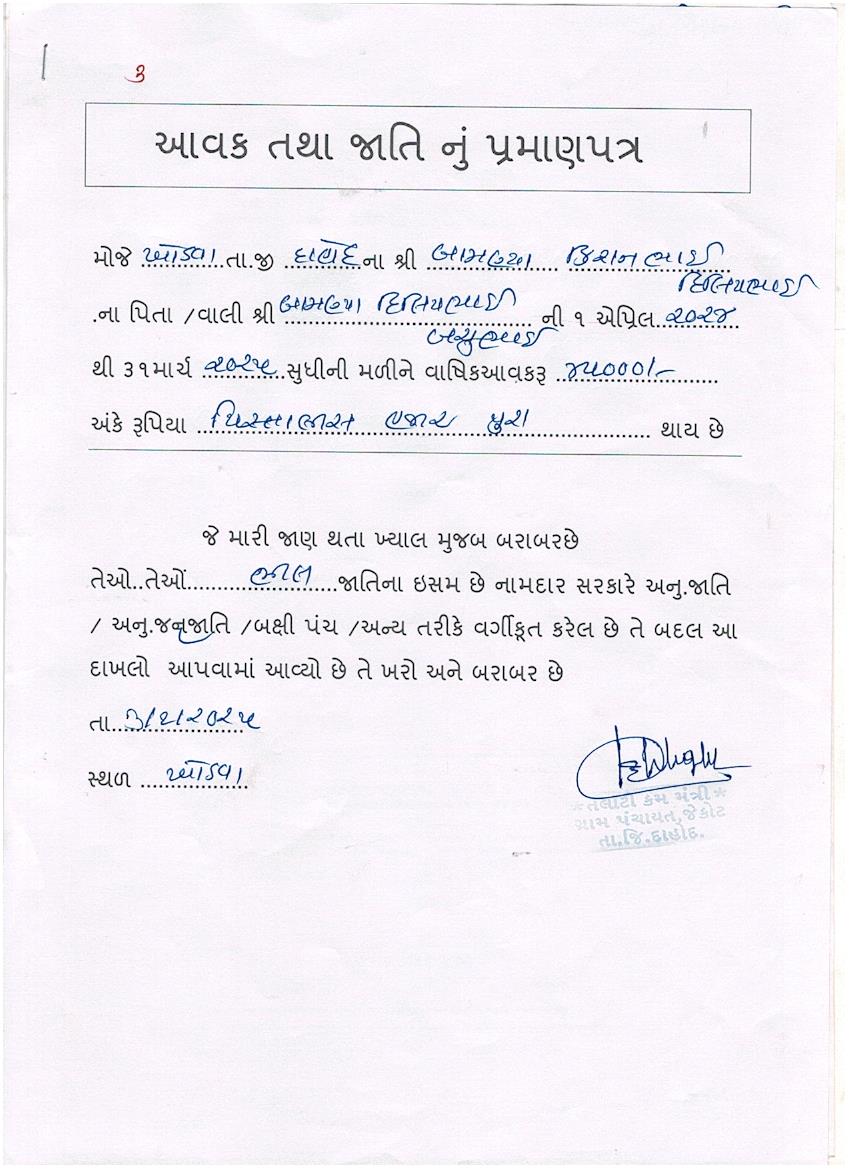 ૩
આવક તથા જાતિ નું પ્રમાણપત્ર
મોજે ખોડવા તા.જી દાહોદ ના શ્રી બામણ્યા કિશનભાઈ
દિલિપભાઈ
.ના પિતા /વાલી શ્રી બામણ્યા દિલિપભાઈ ની ૧ એપ્રિલ ૨૦૨૪
બચુભાઈ
થી ૩૧માર્ચ ૨૦૨૫ સુધીની મળીને વાષિકઆવકરૂ ૪૫૦૦૦/-
અંકે રૂપિયા પિસ્તાલીસ હજાર પુરા થાય છે
જે મારી જાણ થતા ખ્યાલ મુજબ બરાબરછે
તેઓ..તેઓં ભીલ જાતિના ઇસમ છે નામદાર સરકારે અનુ.જાતિ
/ અનુ.જનજાતિ /બક્ષી પંચ /અન્ય તરીકે વર્ગીકૃત કરેલ છે તે બદલ આ
દાખલો આપવામાં આવ્યો છે તે ખરો અને બરાબર છે
તા. ૩/૨/૨૦૨૫
સ્થળ ખોડવા
*તલાટી કમ મંત્રી*
ગ્રામ પંચાયત,જેકોટ
તા.જિ.દાહોદ.